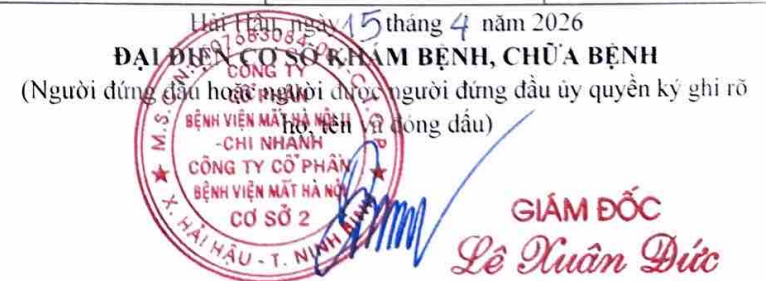 Hải Hậu, ngày 15 tháng 4 năm 2026
ĐẠI DIỆN CƠ SỞ KHÁM BỆNH, CHỮA BỆNH
(Người đứng đầu hoặc người được người đứng đầu ủy quyền ký ghi rõ
họ, tên và đóng dấu)
CÔNG TY
CỔ PHẦN
BỆNH VIỆN MẮT HÀ NỘI II
-CHI NHÁNH
CÔNG TY CỔ PHẦN
BỆNH VIỆN MẮT HÀ NỘI
CƠ SỞ 2
X. HẢI HẬU - T. NINH BÌNH
GIÁM ĐỐC
Lê Xuân Đức